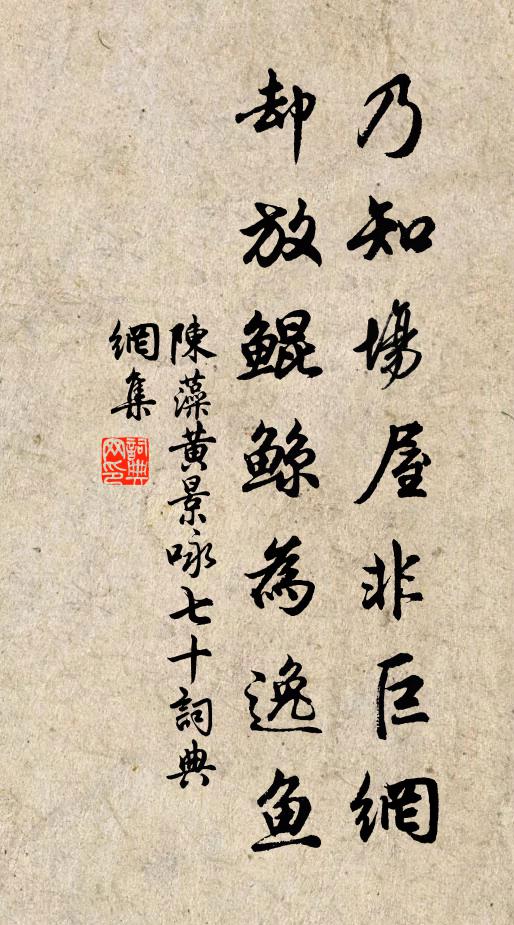 乃知場屋非巨網
却放鯤鯨為逸鱼
陳藻黄景咏七十詞典
網集
詞典網印